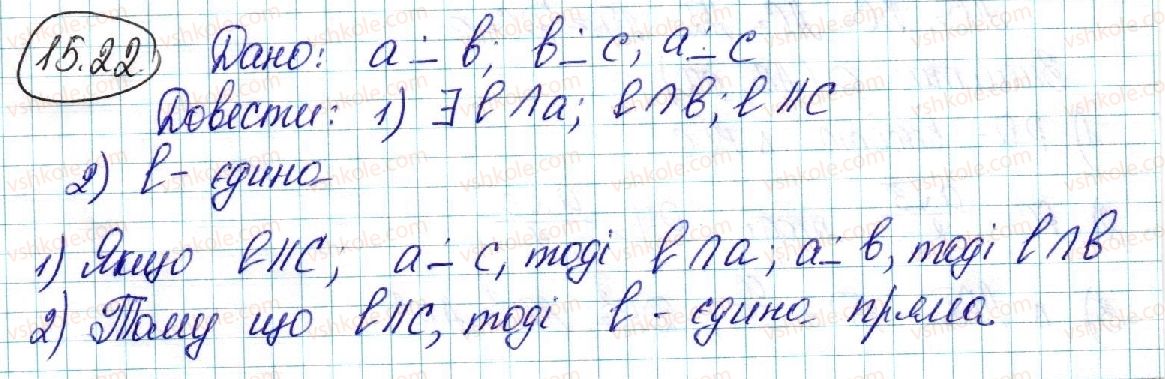 15.22 Дано: a ∸ b; b ∸ c; a ∸ c
Довести: 1) ∃ ℓ ∩ a; ℓ ∩ b; ℓ || c
2) ℓ - єдина
1) Якщо ℓ || c; a ∸ c, тоді ℓ ∩ a; a ∸ b, тоді ℓ ∩ b
2) Тому що ℓ || c, тоді ℓ - єдина пряма.